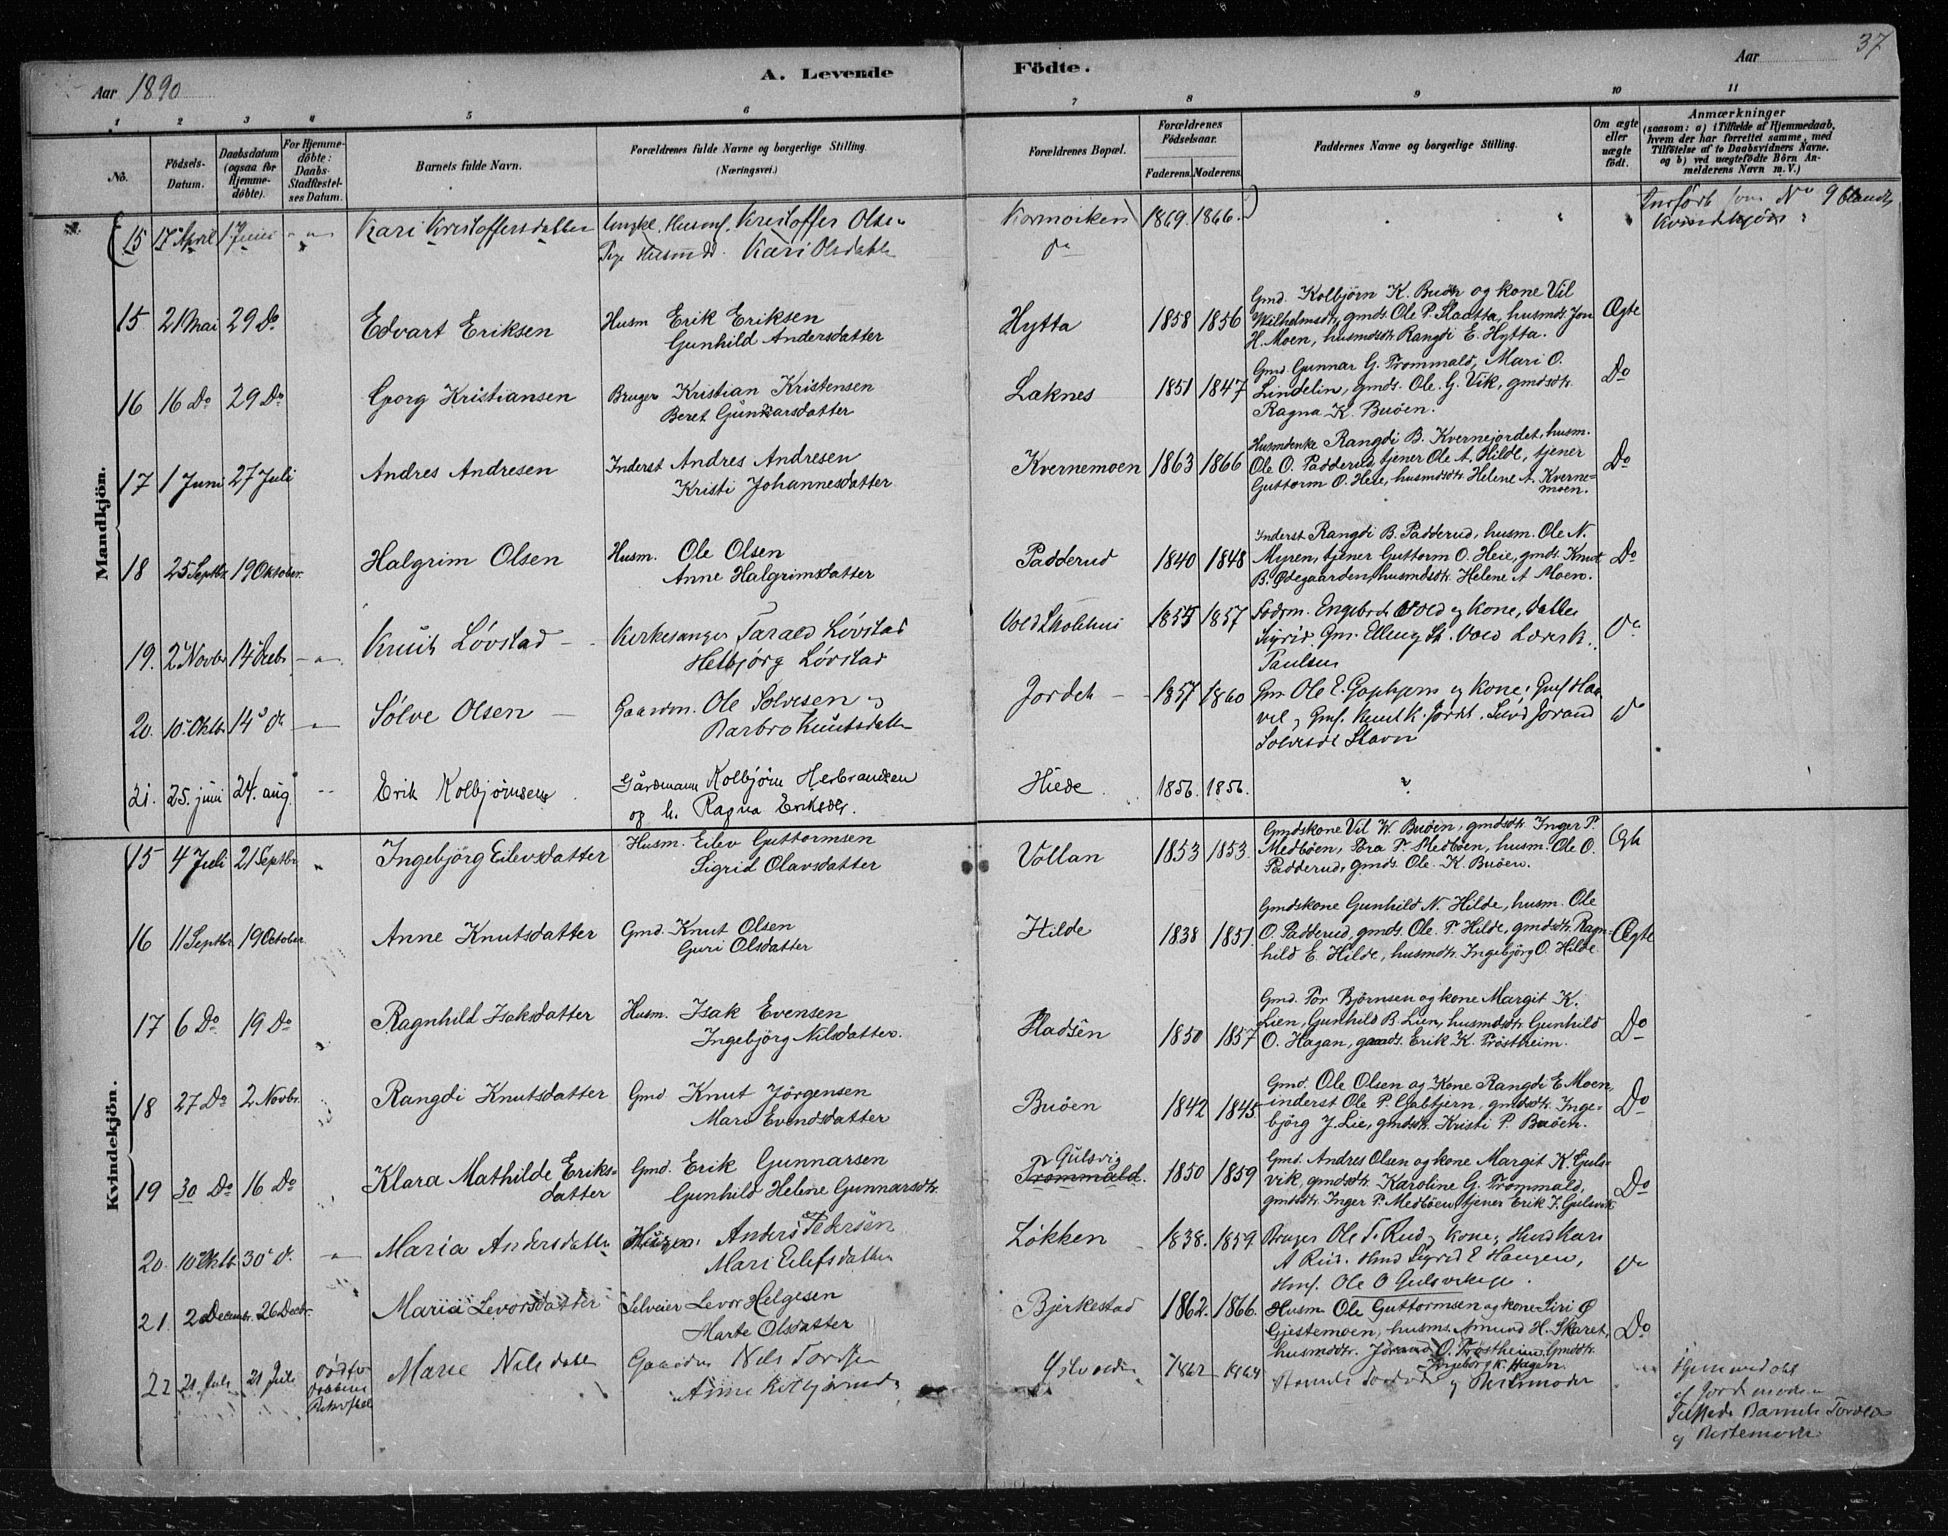 37
Aar 1890
A. Levende Födte.
Aar
1 2 3 4 5 6 7 8 9 10 11
No.
Födsels-Datum.
Daabsdatum (ogsaa for Hjemmedöbte).
For Hjemmedöbte: Daabs-Stadfæstelses Datum.
Barnets fulde Navn.
Forældrenes fulde Navne og borgerlige Stilling.
(Næringsvei.)
Forældrenes Bopæl.
Forældrenes Födselsaar.
Faderens. Moderens.
Faddernes Navne og borgerlige Stilling.
Om ægte eller uægte födt.
Anmærkninger
(saasom: a) i Tilfælde af Hjemmedaab, hvem der har forrettet samme, med Tilföielse af to Daabsvidners Navne. og b) ved uægtefödte Börn Anmelderens Navn m. V.)
Mandkjön.
15 17 April 1 Juni Kari Kristoffersdatter Ungkl. Husmf. Kristoffer Olsen
Pige Husmd. Kari Olsdatter
1869. 1866.
Indført som No 9 blandt
Kvindekjøn
15 21 Mai 29 Do Edvart Eriksen Husm Erik Eriksen
Gunhild Andersdatter
Hytta 1858 1856
Gmd. Kolbjørn K. Buöen og kone Vil
Wilhelmsdtr, gmds. Ole P. Slaatta, husmds. Jon
H. Moen, husmdsdtr. Rangdi E. Hytta.
Ægte
16 16 Do 29 Do Georg Kristiansen Bruger Kristian Kristensen
Beret Gunnarsdatter
Laknes 1851 1847
Gmd Gunnar G. Trommald, Mari O.
Lindelin, gmds. Ole. G. Vik, gmdsdtr.
Ragna K. Buöen.
Do
17 1 Juni 27 Juli Andres Andresen Inderst Andres Andresen
Kristi Johannesdatter
Kvernemoen 1863 1866
Husmdenke Rangdi B. Kvernejordet, husm.
Ole O. Padderud, tjener Ole A. Hilde, tjener
Guttorm O. Heie, husmdsdtr. Helene A. Kvernemoen.
Do
18 25 Septbr. 19 Oktober. Halgrim Olsen Husm. Ole Olsen
Anne Halgrimsdatter
Padderud 1840 1848
Inderst Rangdi B. Padderud, husm. Ole N.
Myren, tjener Guttorm O. Heie, gmds. Knut
B. Ødegaarden, husmdsdtr. Helene A Moen.
Do
19. 2 Novbr 14 Decbr Knut Lövstad Kirkesanger Tarald Lövstad
Helbjörg Lövstad
Vold Skolehus 1855 1857
Vold og kone, datter
Sigrid Gm.
Paulsen
Do
20. 10 Oktb. 14 Do Sölve Olsen Gaardm. Ole Solvesen og
Barbro Knutsdatter
Jordet 1857 1860
Gm. Ole E. og kone,
Gmf. Knut K. Jordet. Jorand
Slavn
Do
21. 25. juni 24. aug. Erik Kolbjörnsen Gårdmann Kolbjörn Herbrandsen
og h. Ragna Eriksdtr.
Hiede. 1856. 1856.
?
Kvindekjön.
15 4 Juli 21 Septbr Ingebjörg Eilevsdatter Husm. Eilev Guttormsen
Sigrid Olavsdatter
Vollan 1853 1853.
Gmdskone Vil W. Buöen, gmdsdtr. Inger P.
Medböen, Tora P. Medböen, husm. Ole O.
Padderud, gmds. Ole. K. Buöen.
Ægte
16 11 Septbr. 19 October. Anne Knutsdatter Gmd. Knut Olsen
Guri Olsdatter
Hilde 1838 1851
Gmdskone Gunhild N. Hilde, husm. Ole
O. Padderud, gmds. Ole. P. Hilde, gmdsdtr. Ragnhild E. Hilde, husmdtr. Ingebjörg O. Hilde.
Ægte
17 6 Do 19 Do Ragnhild Isaksdatter Husm. Isak Evensen
Ingebjörg Nilsdatter.
Pladsen 1850 1857
Gmd. Tor Björnsen og kone Margit K.
Lien, Gunhild B. Lien, husmdsdtr. Gunhild
O. Hagan, gaards. Erik K. Tröstheim.
Do
18 27 Do 2 Novbr. Rangdi Knutsdatter Gmd Knut Jörgensen
Mari Evendsdatter
Buöen 1842 1845
Gmd. Ole Olsen og Kone Rangdi E Moen,
inderst Ole P. Gabtjern, gmdsdtr. Ingebjörg J. Lie, gmdsdtr. Kristi P. Buöen.
Do
19 30 Do 16 Do Klara Mathilde Eriksdatter Gmd. Erik Gunnarsen
Gunhild Helene Gunnarsdtr.
Gulsvig
Trommald. 1850 1859
Gmd. Andres Olsen og kone Margit K. Gulsvik, gmdsdtr. Karoline G. Trommald,
gmdsdtr. Inger P. Medböen, tjener Erik J. Gulsvik
Do
20. 10 Oktb. 30 Do Maria Andersdatter Anders Pedersen
Mari Eilefsdatter
Løkken 1838. 1859
Bruger Ole T. Rud og kone, Kari
A Rud. Hmd Sigrid E Haugen,
Hmf. Ole O Gulsvikeje.
Do
21. 2 December. 26 Decbr. Maria Levorsdatter Selveier Levor Helgesen
Marte Olsdatter
Bjerkestad 1862. 1866.
Husm Ole Guttormsen og kone Siri Ø
Gjestemoen, husms. Amund H. Skaret,
husmdtr. Jörand O. Tröstheim, Gmdtr.
Ingeborg K. Hagen.
Do
22 21 Juli 21 Juli Marie Nilsdatter Nils Tordsen
Anne
1862 1864
Hjemmedøbt
af Jordemoderen